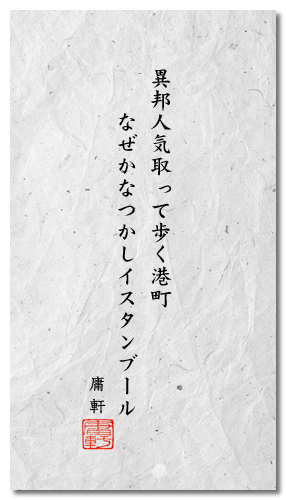 異邦人気取って歩く港町
なぜかなつかしイスタンブール
庸軒